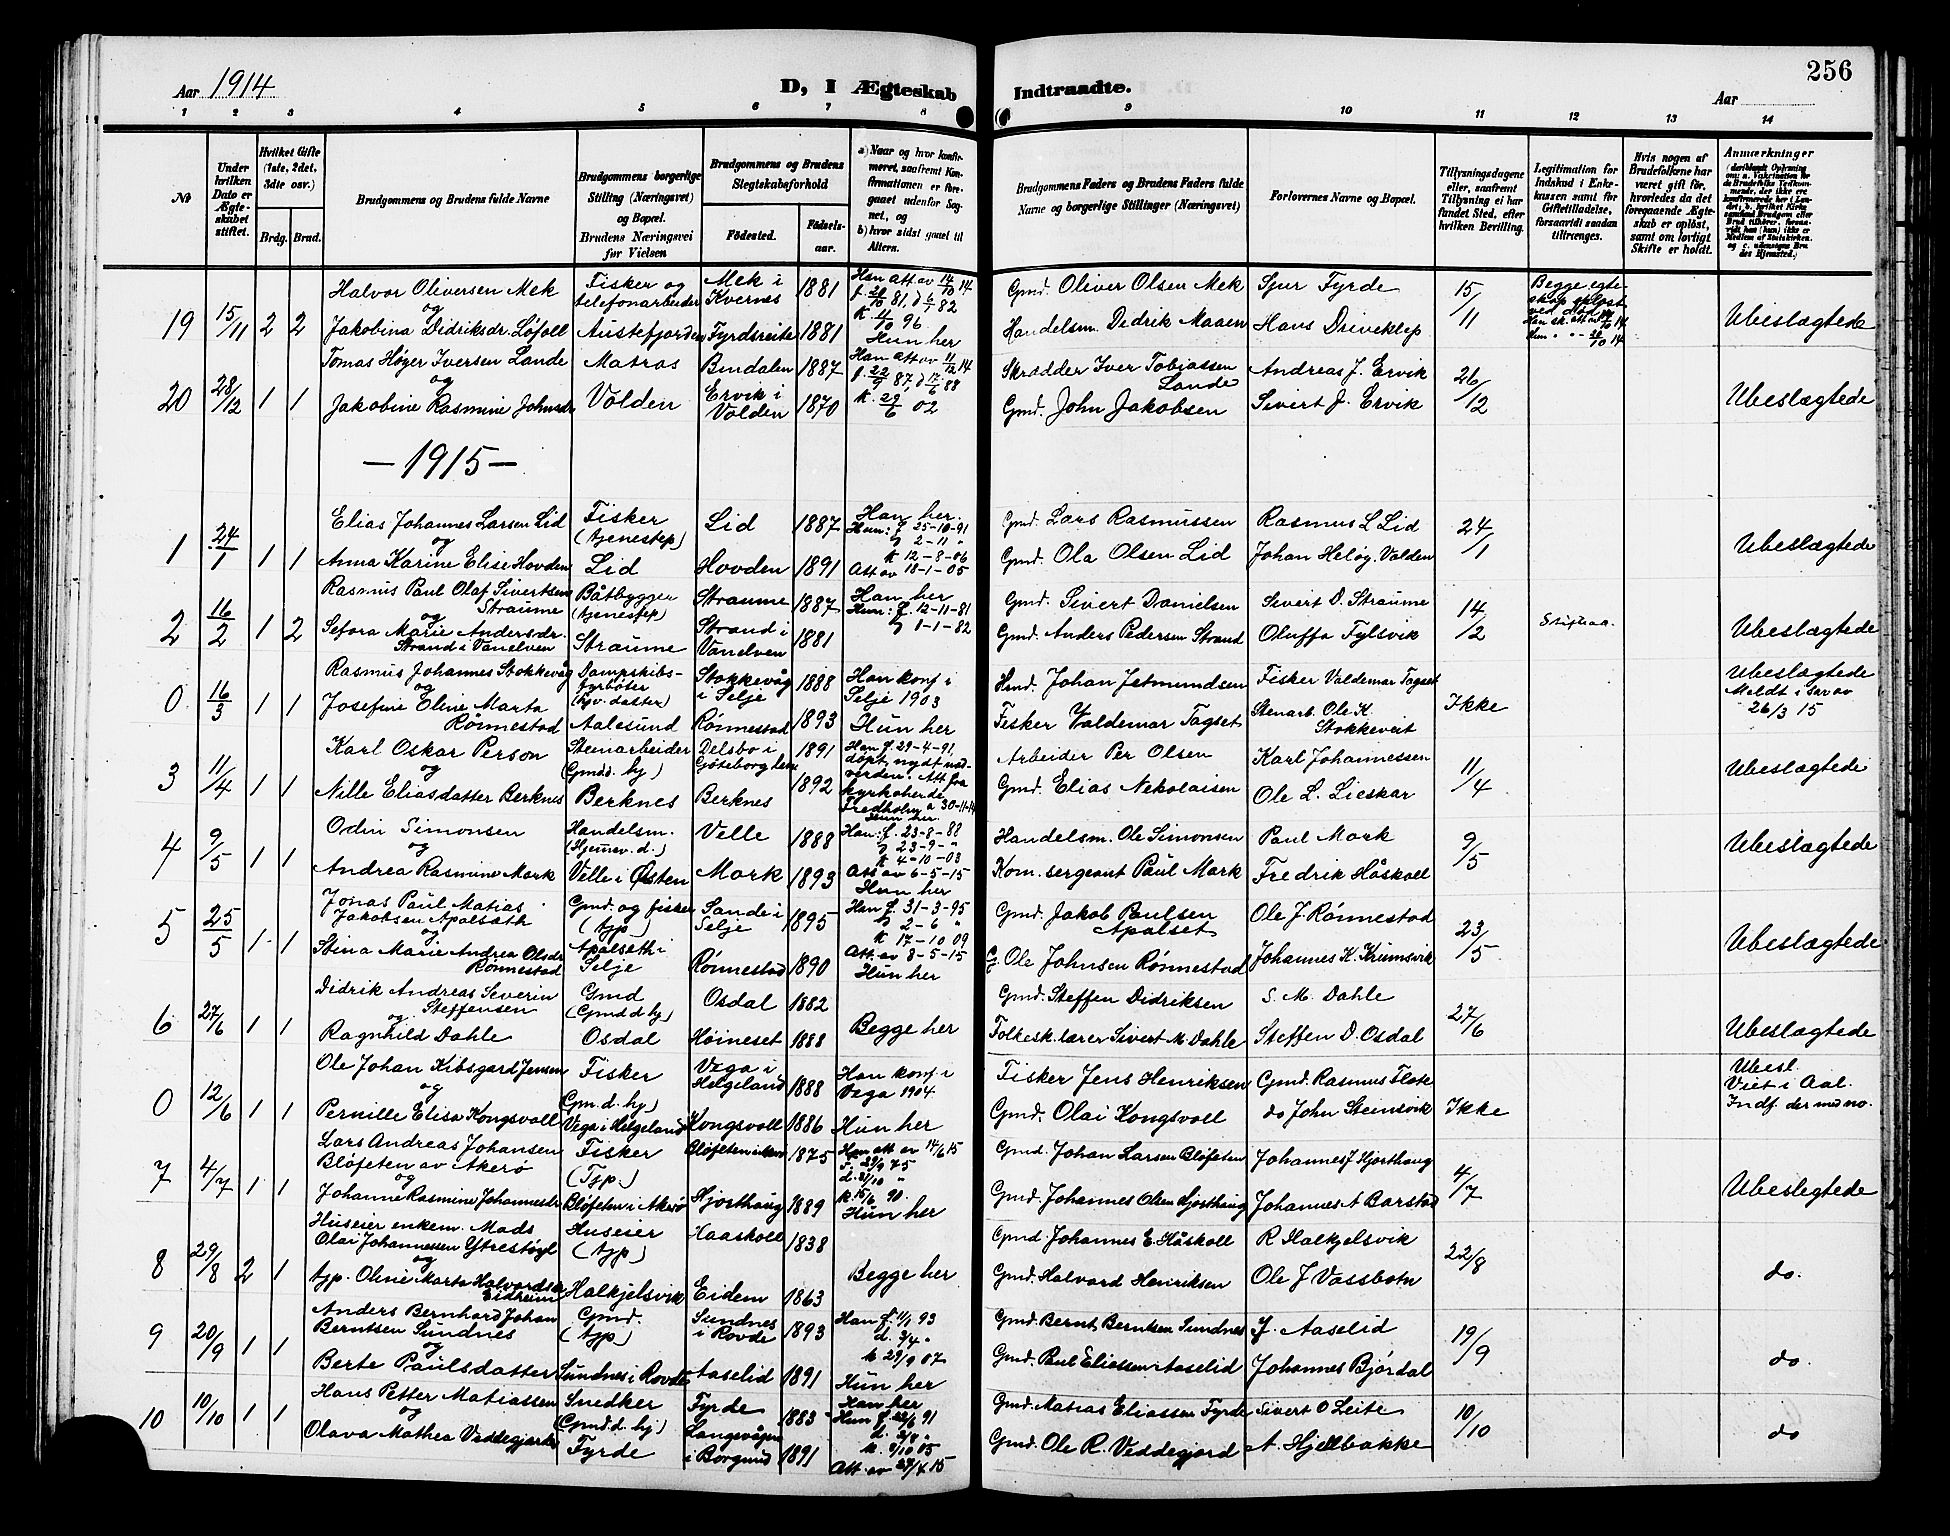 256
Aar 1914
D, I Ægteskab Indtraadte.
Aar
1 2 3 4 5 6 7 8 9 10 11 12 13 14
№
Under hvilken Dato er Ægteskabet stiftet.
Hvilket Gifte (1ste, 2det, 3die osv.)
Brdg. Brud.
Brudgommens og Brudens fulde Navne
Brudgommens borgerlige Stilling (Næringsvei) og Bopæl. Brudens Næringsvei før Vielsen
Brudgommens og Brudens Slegtskabsforhold
Fødested. Fødselsaar.
a) Naar og hvor konfirmeret, saafremt Konfirmationen er foregaaet udenfor Sognet, og
b) hvor sidst gaaet til Alters.
Brudgommens Faders og Brudens Faders fulde Navne og borgerlige Stillinger (Næringsvei)
Forlovernes Navne og Bopæl.
Tillysningsdagene eller, saafremt Tillysning ei har fundet Sted, efter hvilken Bevilling.
Legitimation for Indskud i Enkekassen samt for Giftetilladelse, forsaavidt saadan tiltrænges.
Hvis nogen af Brudefolkene har været gift før, hvorledes da det foregaaende Ægteskab er opløst, samt om lovligt Skifte er holdt.
Anmærkninger
19 15/11 2 2
Halvor Oliversen Mek
og
Jakobina Didriksdr. Løfoll
Fisker og telefonarbeider
Austefjorden
Mek i Kvernes 1881
Fyrdsreite 1881
Han att av 14/10 14
f. 20/10 81, d 6/7 82
k 4/10 96
Hun her
Gmd. Oliver Olsen Mek
Handelsm. Didrik Maaen
Sjur Fyrde
Hans Driveklep
15/11
Begge egteskap opløst ved død
Ubeslægtede
20 28/12 1 1
Tomas Høger Iversen Lande
og
Jakobine Rasmine Johnsdr
Matros
Volden
Bindalen 1887
Ervik i Volden 1870
Han att av 11/12 14
f. 22/9 87, d 17/6 88
k. 29/6 02
Skrædder Iver Tobiassen Lande
Gmd. John Jakobsen
Andreas J. Ervik
Sivert J. Ervik
26/12
Ubeslægtede
– 1915 –
1 24/1 1 1
Elias Johannes Larsen Lid
og
Anna Karine Elise Hovden
Fisker
(tjenestep)
Lid
Lid 1887
Hovden 1891
Han her.
Hun: f 25-10-91
d 2-11 "
k 12-8-06
Att av 18-1-05
Gmd. Lars Rasmussen
Gmd. Ola Olsen Lid
Rasmus L Lid
Johan Heløy. Volden
24/1
Ubeslægtede
2 16/2 1 2
Rasmus Paul Olaf Sivertsen Straume
og
Sefora Marie Andersdr. Strand i Vanelven
Båtbygger
(tjenestep)
Straume
Straume 1887
Strand i Vanelven 1881
Han her
Hun: f. 12-11-81
d 1-1-82
Gmd. Sivert Danielsen
Gmd. Anders Pedersen Strand
Sivert D. Straume
Oluffa Fylsvik
14/2
Ubeslægtede
0 16/3 1 1
Rasmus Johannes Stokkevåg
og
Josefine Eline Marta Rønnestad
Dampskibsfyrbøter
Aalesund
Stokkevåg i Selje 1888
Rønnestad 1893
Han konf i Selje 1903
Hun her
Hmd. Johan Jetmundsen
Fisker Valdemar Tagset
Fisker Valdemar Tagset
Stenarb. Ole K Stokkeveit
Ikke
Ubeslægtede
26/3 15
3 11/4 1 1
Karl Oskar Person
og
Nille Eliasdatter Berknes
Stenarbeider
(Gmdd. hj)
Berknes
Delsbo i Gøteborg len 1891
Berknes 1892
Han f. 29-4-91,
døpt, nydt nadverden. Att fra kyrkoherde Fredholm a 30-11-14
Hun her.
Arbeider Per Olsen
Gmd. Elias Nekolaisen
Karl Johannessen
Ole L. Lieskar
11/4
Ubeslægtede
4 9/5 1 1
Odin Simonsen
og
Andrea Rasmine Mork
Handelsm.
(Hjemmev. d.)
Velle i Ørsten
Velle 1888
Mork 1893
Han: f. 23-8-88
d 23-9-"
k 4-10-03
Att av 6-5-15
Hun her
Handelsm. Ole Simonsen
Kom. sergeant Paul Mork
Paul Mork
Fredrik Håskoll
9/5
Ubeslægtede
5 25/5 1 1
Jonas Paul Matias Jakobsen Apalsæth
og
Stina Marie Andrea Olsdr Rønnestad
Gmd. og fisker
(tjp)
Apalseth i Selje
Sande i Selje 1895
Rønnestad 1890
Han f. 31-3-95
d 2-6 "
k 17-10 09
Att. av 8-5-15
Hun her
Gmd. Jakob Paulsen Apalset
G. Ole Johnsen Rønnestad
Ole J. Rønnestad
Johannes K. Krumsvik
23/5
Ubeslægtede
6 27/6 1 1
Didrik Andreas Severin Steffensen
og
Ragnhild Dahle
Gmd
(Gmd d hj)
Osdal
Osdal 1882
Høineset 1888
Begge her
Gmd. Steffen Didriksen
Folkesk. lærer Sivert M. Dahle
S. M. Dahle
Steffen D. Osdal
27/6
Ubeslægtede
0 12/6 1 1
Ole Johan Kibsgard Jensen
og
Pernille Elisa Kongsvoll
Fisker
(Gm. d. hj)
Vega i Helgeland
Vega i Helgeland 1888
Kongsvoll 1886
Han konf i Vega 1904.
Hun her
Fisker Jens Henriksen
Gmd. Olai Kongsvoll
Gmd. Rasmus Flote
do John Steinsvik
Ikke
Ubesl.
Viet i Aal.
Indf. der med no.
7 4/7 1 1
Lars Andreas Johansen Bløfeten av Akerø
og
Johanne Rasmine Johannesdr
Fisker
(Tjp.)
Bløfeten i Akerø
1875
Hjorthaug 1889
Han att av 14/6 15
f. 29/9 75
d. 31/10 "
k 15/6 90.
Hun her
Gmd. Johan Larsen Bløfeten
Gmd. Johannes Olsen Hjorthaug
Johannes J Hjorthaug
Johannes A Barstad
4/7
Ubeslegtede
8 29/8 2 1
Huseier enkem. Mads Olai Johannessen Ytrestøyl
og
tjp. Oline Marta Halvardsdr Eidheim
Huseier
(tjp)
Halkjelsvik
Haaskoll 1838
Eidem 1863
Begge her
Gmd. Johannes E. Håskoll
Gmd. Halvard Henriksen
R Halkjelsvik
Ole J Vassbotn
22/8
do.
9 20/9 1 1
Anders Bernhard Johan Berntsen Sundnes
og
Berte Paulsdatter
Gmd.
(tjp)
Sundnes i Rovde
Sundnes i Rovde 1893
Aaselid 1891
Han f. 1/1 93
d. 3/4 "
k 29/9 07
Hun her
Gmd. Bernt Berntsen Sundnes
Gmd. Paul Eliassen Aaselid
J. Aaselid
Johannes Bjørdal
19/9
do.
10 10/10 1 1
Hans Petter Matiassen
og
Olava Mathea Veddegjerde
Snedker
(Gmd. d. hj)
Fyrde
Fyrde 1883
Langevågen i Borgund 1891
Han her
Hun f. 22/6 91
d. 2/8 "
k. 8/10 05
Att. av 27/4 15
Gmd. Matias Eliassen Fyrde
Gmd. Ole R. Veddegjord
Sivert O Leite
A. Hjellbakke
10/10
do